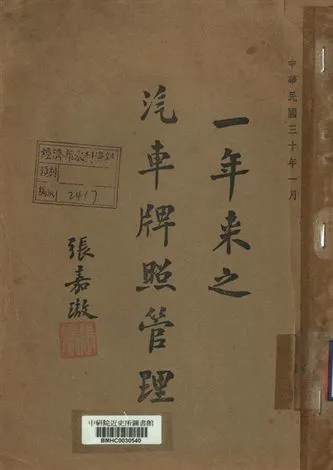 中華民國三十年一月
一年来之
汽車牌照管理
張嘉璈
2417
中研院近史所圖書館
BMHC0030540